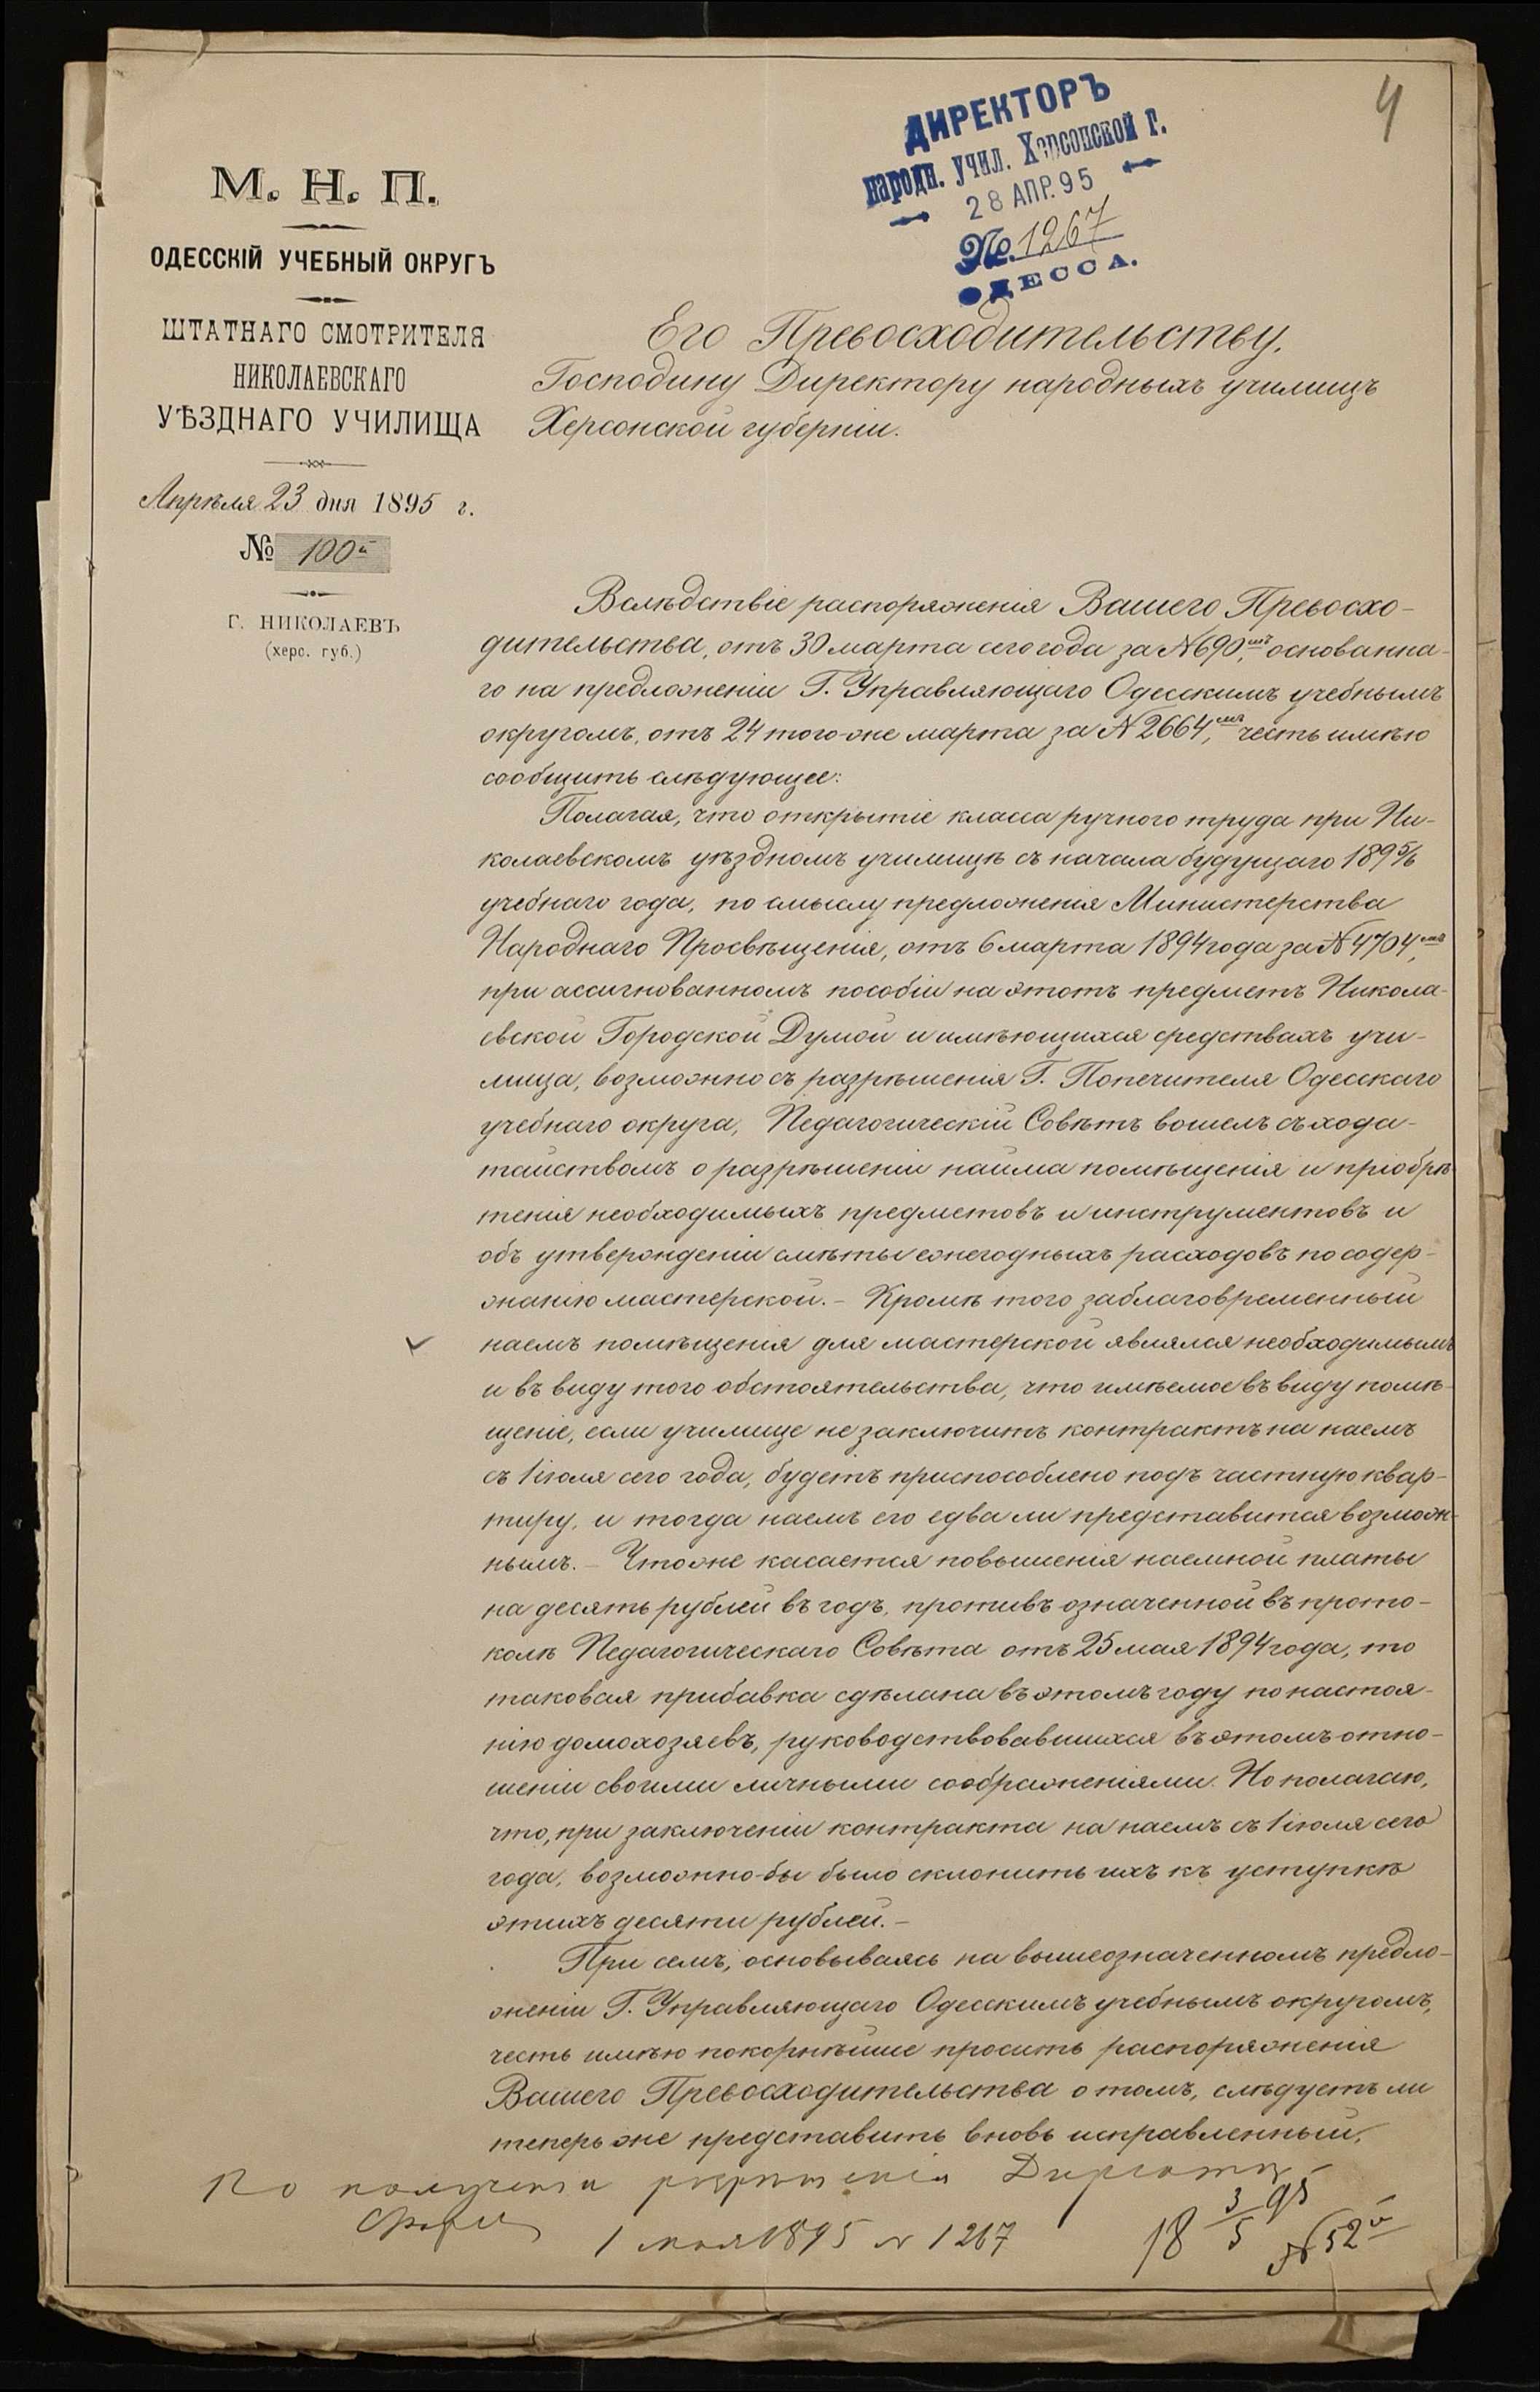 4
ДИРЕКТОРЪ
народн. учил. Херсонской Г.
28 АПР. 95
№ 1267
ОДЕССА.
М. Н. П.
ОДЕССКІЙ УЧЕБНЫЙ ОКРУГЪ
ШТАТНАГО СМОТРИТЕЛЯ
НИКОЛАЕВСКАГО
УѢЗДНАГО УЧИЛИЩА
Апрѣля 23 дня 1895 г.
№ 100й
Г. НИКОЛАЕВЪ
(херс. губ.)
Его Превосходительству,
Господину Директору народныхъ училищъ
Херсонской губерніи.
Вслѣдствіе распоряженія Вашего Превосхо-
дительства, отъ 30 марта сего года за № 690, основанна-
го на предложеніи Г. Управляющаго Одесскимъ учебнымъ
округомъ, отъ 24 того-же марта за № 2664, честь имѣю
сообщить слѣдующее:
Полагая, что открытіе класса ручного труда при Ни-
колаевскомъ уѣздномъ училищѣ съ начала будущаго 1895/6
учебнаго года, по смыслу предложенія Министерства
Народнаго Просвѣщенія, отъ 6 марта 1894 года за № 4704,
при ассигнованномъ пособіи на этотъ предметъ Никола-
евской Городской Думой и имѣющихся средствахъ учи-
лища, возможно съ разрѣшенія Г. Попечителя Одесскаго
учебнаго округа, Педагогическій Совѣтъ вошелъ съ хода-
тайствомъ о разрѣшеніи найма помѣщенія и пріобрѣ-
тенія необходимыхъ предметовъ и инструментовъ и
объ утвержденіи смѣты ежегодныхъ расходовъ по содер-
жанію мастерской. – Кромѣ того заблаговременный
наемъ помѣщенія для мастерской являлся необходимымъ
и въ виду того обстоятельства, что имѣемое въ виду помѣ-
щеніе, если училище не заключитъ контрактъ на наемъ
съ 1 іюля сего года, будетъ приспособлено подъ частную квар-
тиру, и тогда наемъ его едва ли представится возмож-
нымъ. – Что же касается повышенія наемной платы
на десять рублей въ годъ, противъ означенной въ прото-
колѣ Педагогическаго Совѣта отъ 25 мая 1894 года, то
таковая прибавка сдѣлана въ этомъ году по настоя-
нію домохозяевъ, руководствовавшихся въ этомъ отно-
шеніи своими личными соображеніями. Но полагаю,
что, при заключеніи контракта на наемъ съ 1 іюля сего
года, возможно-бы было склонить ихъ къ уступкѣ
этихъ десяти рублей. –
При семъ, основываясь на вышеозначенномъ предло-
женіи Г. Управляющаго Одесскимъ учебнымъ округомъ,
честь имѣю покорнѣйше просить распоряженія
Вашего Превосходительства о томъ, слѣдуетъ ли
теперь же представить вновь исправленный,
По полученіи разрѣшенія
1 мая 1895 № 1267
18 3/5 95
№ 52й